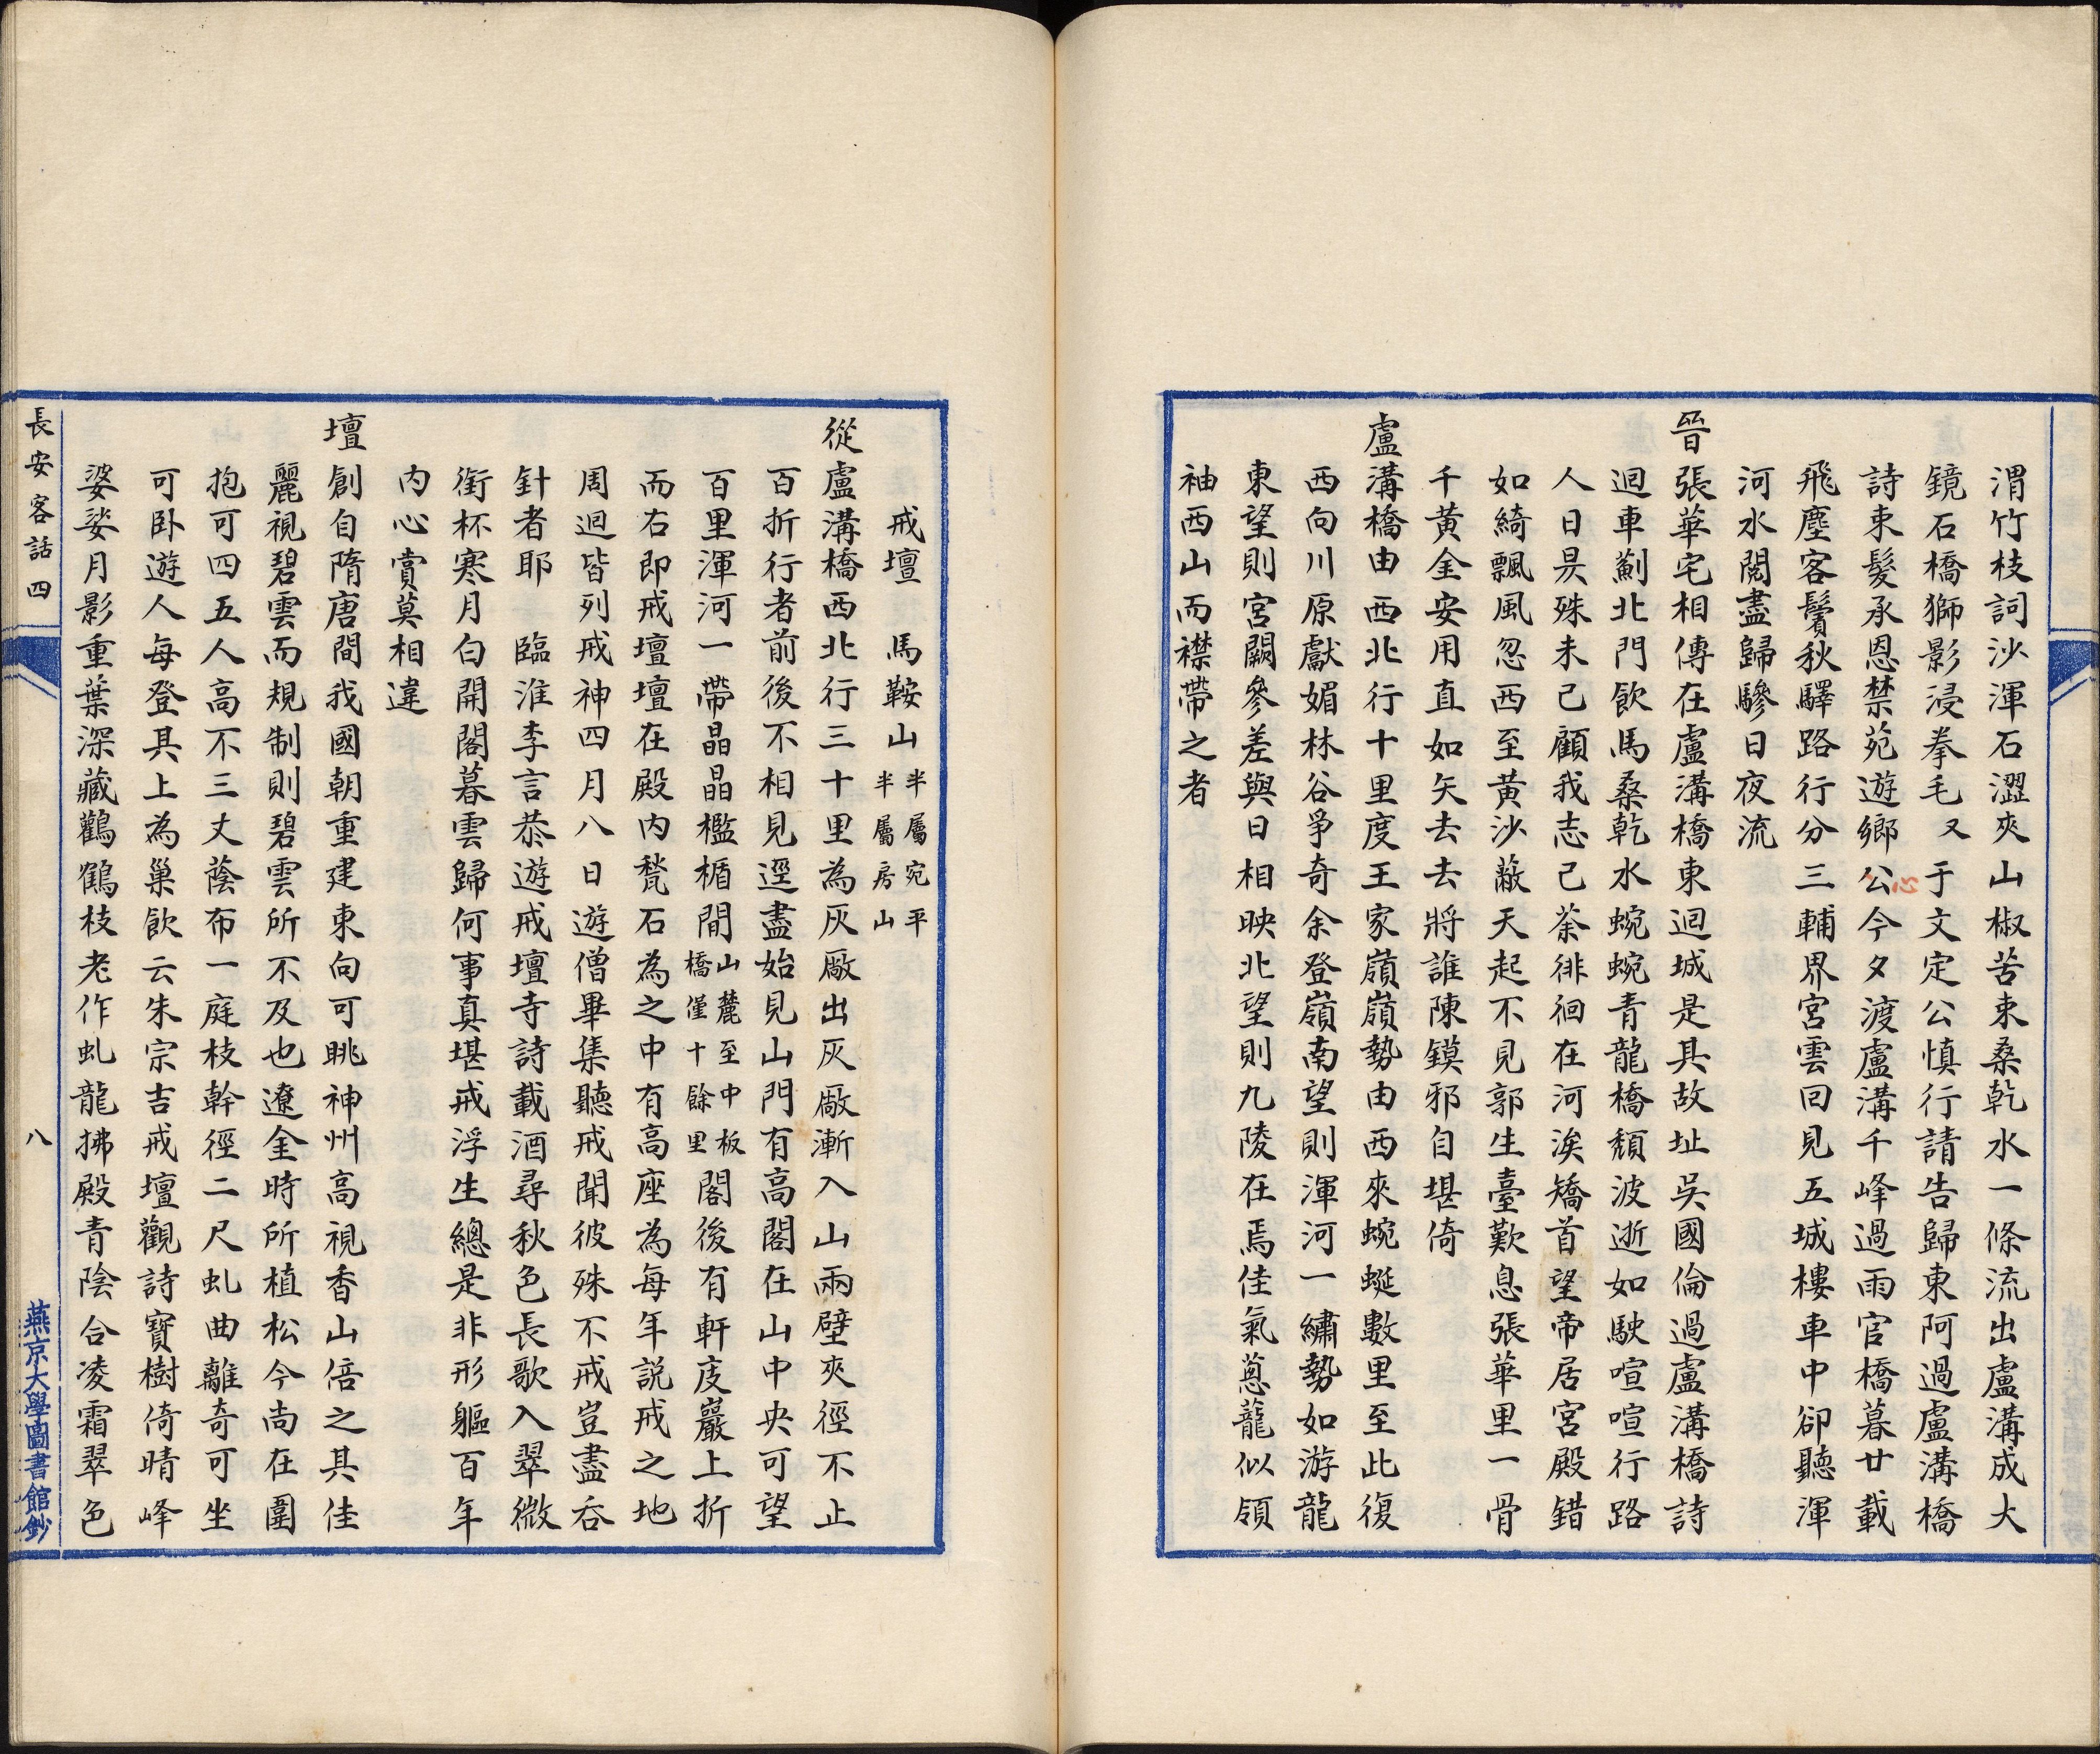 渭竹枝詞沙渾石澀夾山椒苦束桑乾水一條流出盧溝成大
鏡石橋獅影浸拳毛又于文定公慎行請告歸東阿過盧溝橋
詩束髮承恩禁苑遊鄉公今夕渡盧溝千峰過雨官橋暮廿載
心
飛塵客鬢秋驛路行分三輔界宮雲回見五城樓車中卻聽渾
河水閱盡歸驂日夜流
晉張華宅相傳在盧溝橋東迴城是其故址吳國倫過盧溝橋詩
迴車薊北門飲馬桑乾水蜿蜿青龍橋頹波逝如駛喧喧行路
人日昃殊未已顧我志已荼徘徊在河涘矯首望帝居宮殿錯
如綺飄風忽西至黄沙蔽天起不見郭生臺歎息張華里一骨
千黄金安用直如矢去去將誰陳鏌邪自堪倚
盧溝橋由西北行十里度王家嶺嶺勢由西來蜿蜒數里至此復
西向川原獻媚林谷爭奇余登嶺南望則渾河一繡勢如游龍
東望則宮闕參差與日相映北望則九陵在焉佳氣蔥蘢似領
袖西山而襟帶之者
戒壇 馬鞍山半屬宛平半屬房山
從盧溝橋西北行三十里為灰廠出灰廠漸入山兩壁夾徑不止
百折行者前後不相見逕盡始見山門有高閣在山中央可望
百里渾河一帶晶晶檻楯間山麓至中板橋僅十餘里閣後有軒庋巖上折
而右即戒壇壇在殿内甃石為之中有高座為每年説戒之地
周迴皆列戒神四月八日遊僧畢集聽戒聞彼殊不戒豈盡吞
針者耶 臨淮李言恭遊戒壇寺詩載酒尋秋色長歌入翠微
銜杯寒月白開閣暮雲歸何事真堪戒浮生總是非形軀百年
内心賞莫相違
壇創自隋唐間我國朝重建東向可眺神州高視香山倍之其佳
麗視碧雲而規制則碧雲所不及也遼金時所植松今尚在圍
抱可四五人高不三丈蔭布一庭枝幹徑二尺虬曲離奇可坐
可卧遊人每登其上為巢飲云朱宗吉戒壇觀詩寶樹倚晴峰
婆娑月影重葉深藏鸛鶴枝老作虬龍拂殿青陰合凌霜翠色
長安客話四
八
燕京大學圖書館鈔